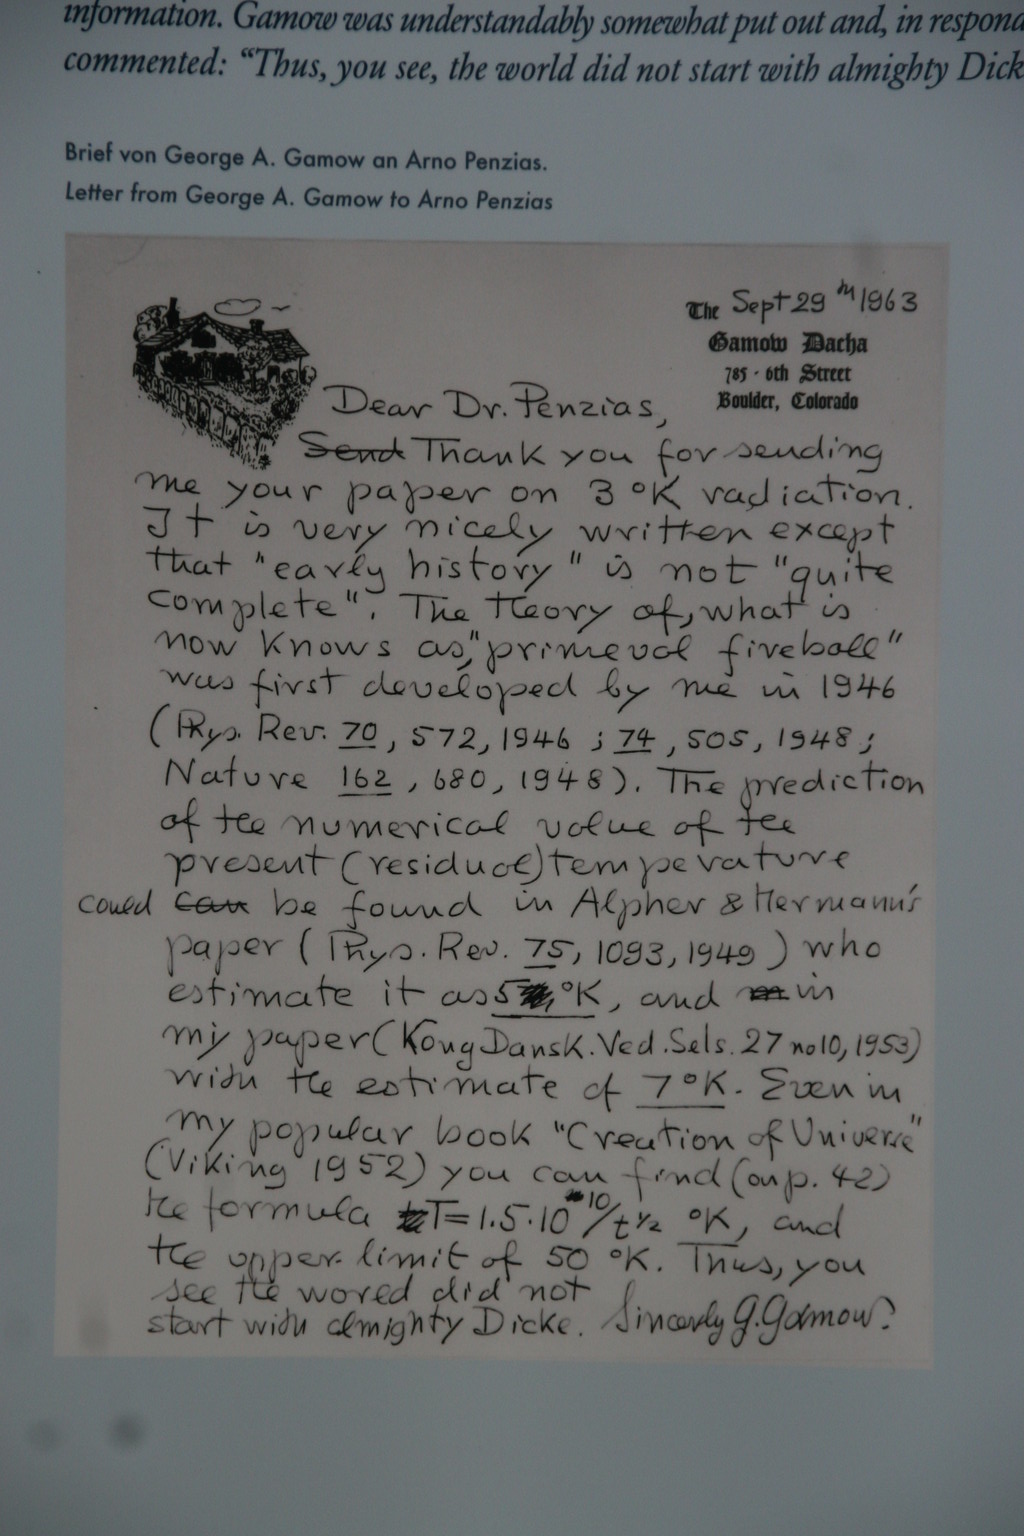 information. Gamow was understandably somewhat put out and, in respond
commented: “Thus, you see, the world did not start with almighty Dick
Brief von George A. Gamow an Arno Penzias.
Letter from George A. Gamow to Arno Penzias
The Sept 29th 1963
Gamow Dacha
785 · 6th Street
Boulder, Colorado
Dear Dr. Penzias,
Send Thank you for sending
me your paper on 3 °K radiation.
It is very nicely written except
that "early history" is not "quite
complete". The theory of, what is
now knows as, "primeval fireball"
was first developed by me in 1946
(Phys. Rev. 70, 572, 1946; 74, 505, 1948;
Nature 162, 680, 1948). The prediction
of the numerical value of the
present (residual) temperature
could can be found in Alpher & Hermann's
paper (Phys. Rev. 75, 1093, 1949) who
estimate it as 5 °K, and in
my paper (Kong Dansk. Ved. Sels. 27 no 10, 1953)
with the estimate of 7 °K. Even in
my popular book "Creation of Universe"
(Viking 1952) you can find (on p. 42)
the formula T=1.5·10¹⁰/t½ °K, and
the upper limit of 50 °K. Thus, you
see the world did not
start with almighty Dicke. Sincerly G. Gamow